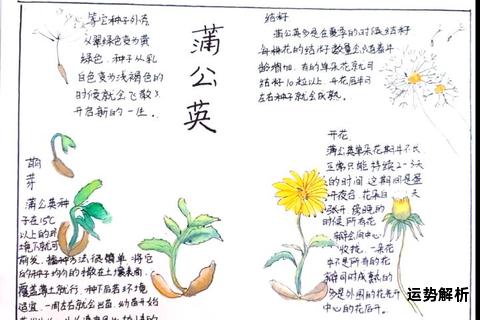 等它种子外壳
从翠绿色变为黄
绿色,种子从乳
白色变为浅褐色的
时候就会飞散
开启新的一生。
蒲公英
结籽
蒲公英多是在夏季的时候结籽
每株花的结籽数量会
龄增加,有的单朵花就可
结籽10粒以上,开花后半月
左右种子就会成熟。
萌芽
蒲公英种
子在15℃
以上的环
境下就可
萌发,播种方法很简单,将它
的种子均匀的撒在土壤表面,
覆盖薄土就行,种下后若环境
适宜,一周左右就会出苗,幼苗开始
开花
蒲公英单朵花期并不长
正常只能持续2-3天
的时间,这期间是昼
开夜合,花朵白天
张开,傍晚的
时候所有花
瓣会向中心
收拢,一朵花
中不是所有的花
瓣同时成熟的
多是外围的花先开
中心的花后开。
运势解析